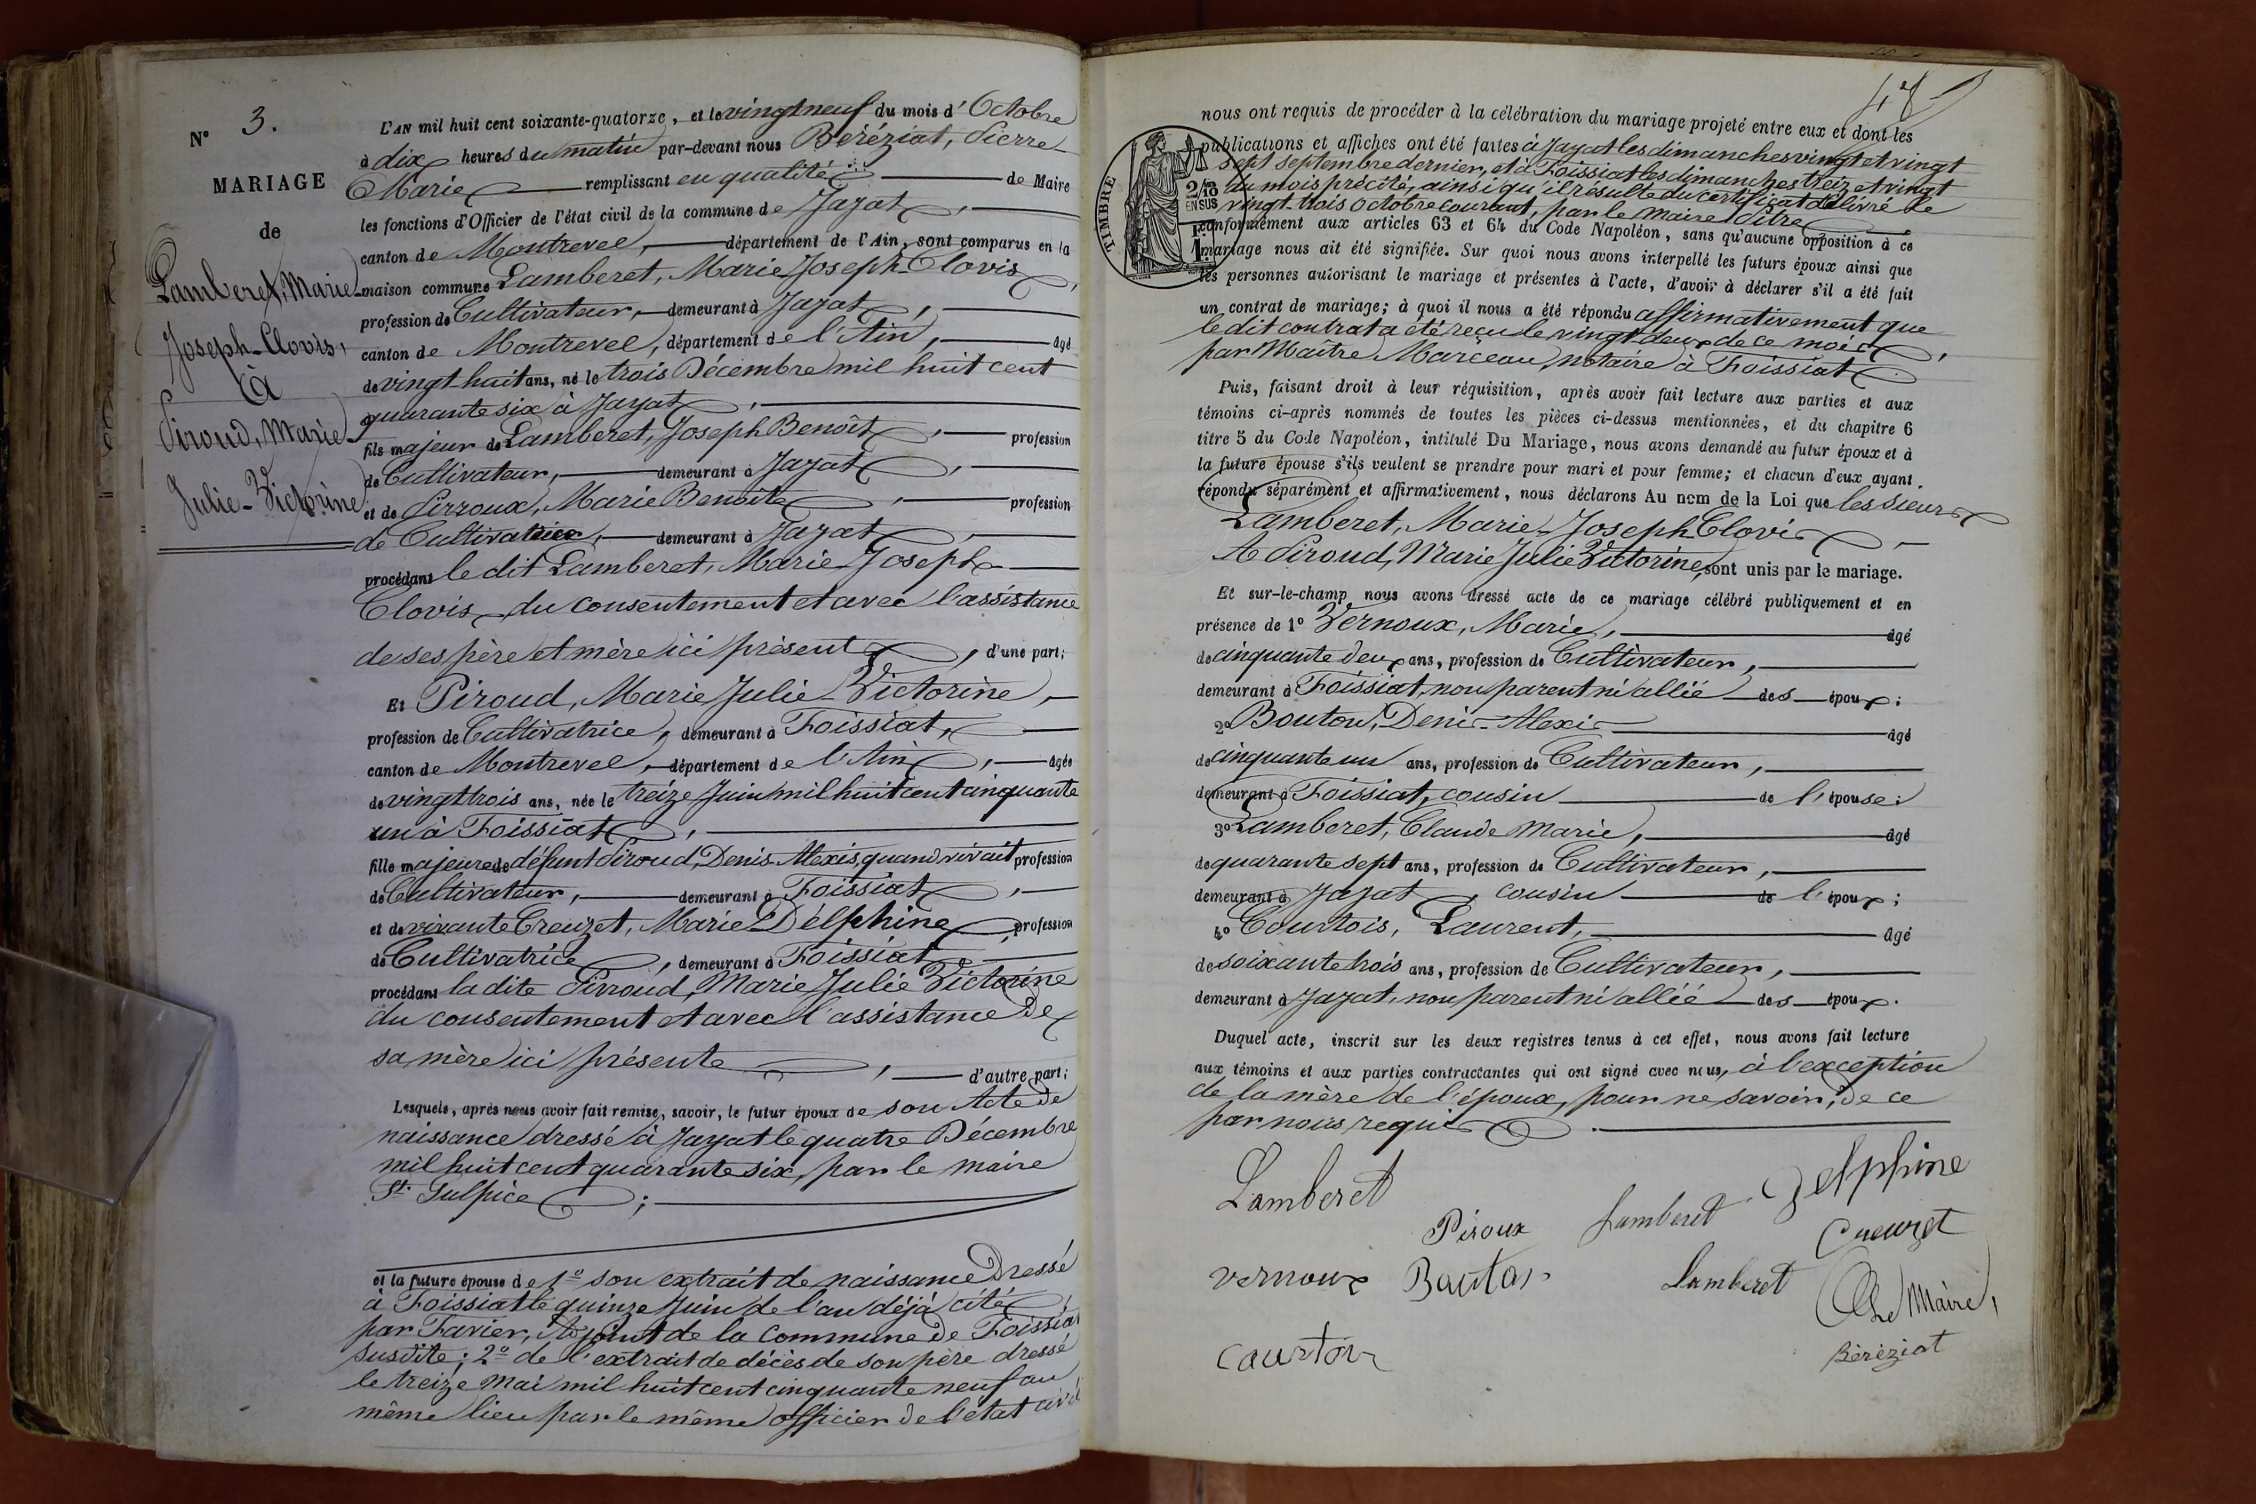 N° 3.
MARIAGE
de
Lamberet, Marie
Joseph-Clovis,
à
Piroud, Marie
Julie-Victorine
L'AN mil huit cent soixante-quatorze, et le vingt neuf du mois d'Octobre
à dix heures du matin par-devant nous Béréziat, Pierre
Marie remplissant en qualité de Maire
les fonctions d'Officier de l'état civil de la commune de Jayat,
canton de Montrevel, département de l'Ain, sont comparus en la
maison commune Lamberet, Marie Joseph Clovis,
profession de Cultivateur, demeurant à Jayat,
canton de Montrevel, département de l'Ain, âgé
de vingt huit ans, né le trois Décembre mil huit cent
quarante six à Jayat,
fils majeur de Lamberet, Joseph Benoît, profession
de Cultivateur, demeurant à Jayat,
et de Pirroux, Marie Benoite, profession
de Cultivatrice, demeurant à Jayat,
procédant le dit Lamberet, Marie Joseph
Clovis, du consentement et avec l'assistance
de ses père et mère ici présents, d'une part;
Et Piroud, Marie Julie Victorine,
profession de Cultivatrice, demeurant à Foissiat,
canton de Montrevel, département de l'Ain, âgée
de vingt trois ans, née le treize Juin mil huit cent cinquante
un à Foissiat,
fille majeure de défunt Piroud, Denis Alexis, quand vivait profession
de Cultivateur, demeurant à Foissiat,
et de vivante Creuzet, Marie Delphine, profession
de Cultivatrice, demeurant à Foissiat
procédant la dite Pirroud, Marie Julie Victorine
du consentement et avec l'assistance de
sa mère ici présente, d'autre part;
Lesquels, après nous avoir fait remise, savoir, le futur époux de son Acte de
naissance dressé à Jayat le quatre Décembre
mil huit cent quarante six, par le maire
St. Sulpice;
et la future épouse de 1° son extrait de naissance dressé
à Foissiat le quinze Juin de l'an déjà cité,
par Favier, Adjoint de la Commune de Foissiat
susdite; 2° de l'extrait de décès de son père dressé
le treize Mai mil huit cent cinquante neuf au
même lieu par le même officier de l'état civil
48
nous ont requis de procéder à la célébration du mariage projeté entre eux et dont les
publications et affiches ont été faites à Jayat les dimanches vingt et vingt
sept septembre dernier, et à Foissiat les dimanches treize et vingt
du mois précité, ainsi qu'il résulte du certificat délivré le
vingt-trois Octobre courant, par le Maire Pitre
conformément aux articles 63 et 64 du Code Napoléon, sans qu'aucune opposition à ce
mariage nous ait été signifiée. Sur quoi nous avons interpellé les futurs époux ainsi que
les personnes autorisant le mariage et présentes à l'acte, d'avoir à déclarer s'il a été fait
un contrat de mariage; à quoi il nous a été répondu affirmativement que
le dit contrat a été reçu le vingt deux de ce mois,
par Maître Marceau, notaire à Foissiat
TIMBRE
2/10
EN SUS
Puis, faisant droit à leur réquisition, après avoir fait lecture aux parties et aux
témoins ci-après nommés de toutes les pièces ci-dessus mentionnées, et du chapitre 6
titre 5 du Code Napoléon, intitulé Du Mariage, nous avons demandé au futur époux et à
la future épouse s'ils veulent se prendre pour mari et pour femme; et chacun d'eux ayant
répondu séparément et affirmativement, nous déclarons Au nom de la Loi que les sieurs
Lamberet, Marie-Joseph Clovis
Et Piroud, Marie Julie Victorine, sont unis par le mariage.
Et sur-le-champ nous avons dressé acte de ce mariage célébré publiquement et en
présence de 1° Vernoux, Marie, âgé
de cinquante deux ans, profession de Cultivateur,
demeurant à Foissiat, non parent ni allié des époux;
2° Bouton, Denis-Alexis âgé
de cinquante un ans, profession de Cultivateur,
demeurant à Foissiat, cousin de l'épouse;
3° Lamberet, Claude Marie, âgé
de quarante sept ans, profession de Cultivateur,
demeurant à Jayat, cousin de l'époux;
4° Courtois, Laurent, âgé
de soixante trois ans, profession de Cultivateur,
demeurant à Jayat, non parent ni allié des époux.
Duquel acte, inscrit sur les deux registres tenus à cet effet, nous avons fait lecture
aux témoins et aux parties contractantes qui ont signé avec nous, à l'exception
de la mère de l'époux, pour ne savoir, de ce
par nous requis.
Lamberet Delphine
Piroux Lamberet Creuzet
Vernoux Bouton Lamberet Le Maire,
Courtois Béréziat